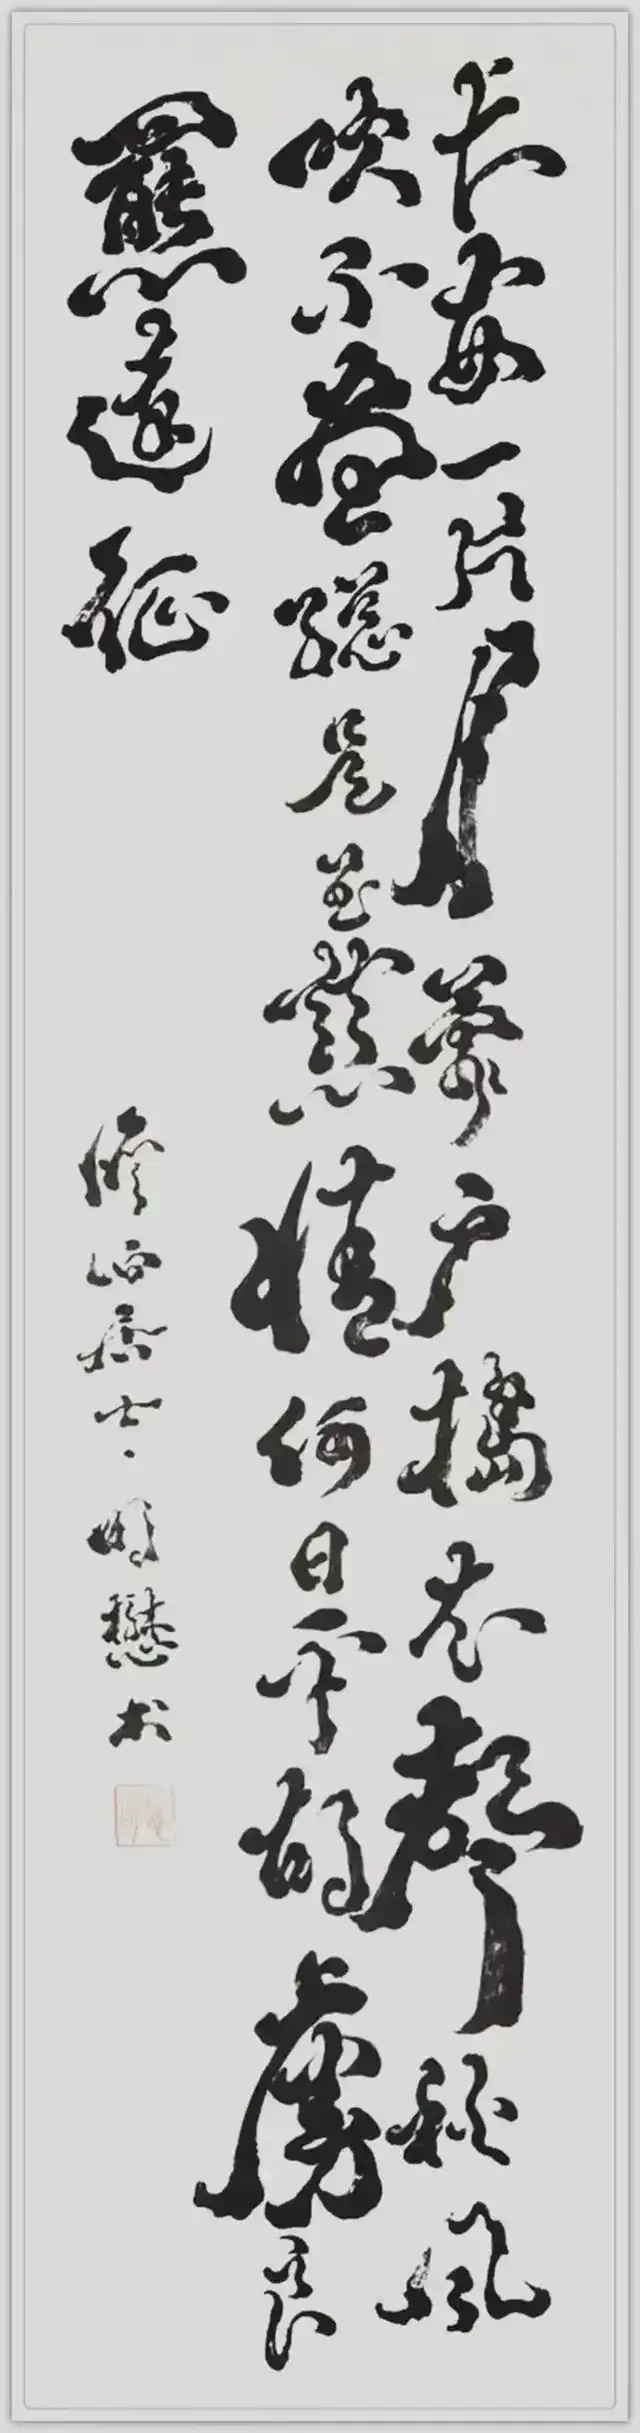 長安一片月萬户擣衣聲秋風
吹不盡總是玉關情何日平胡虜良
罷遠征
居士懋书